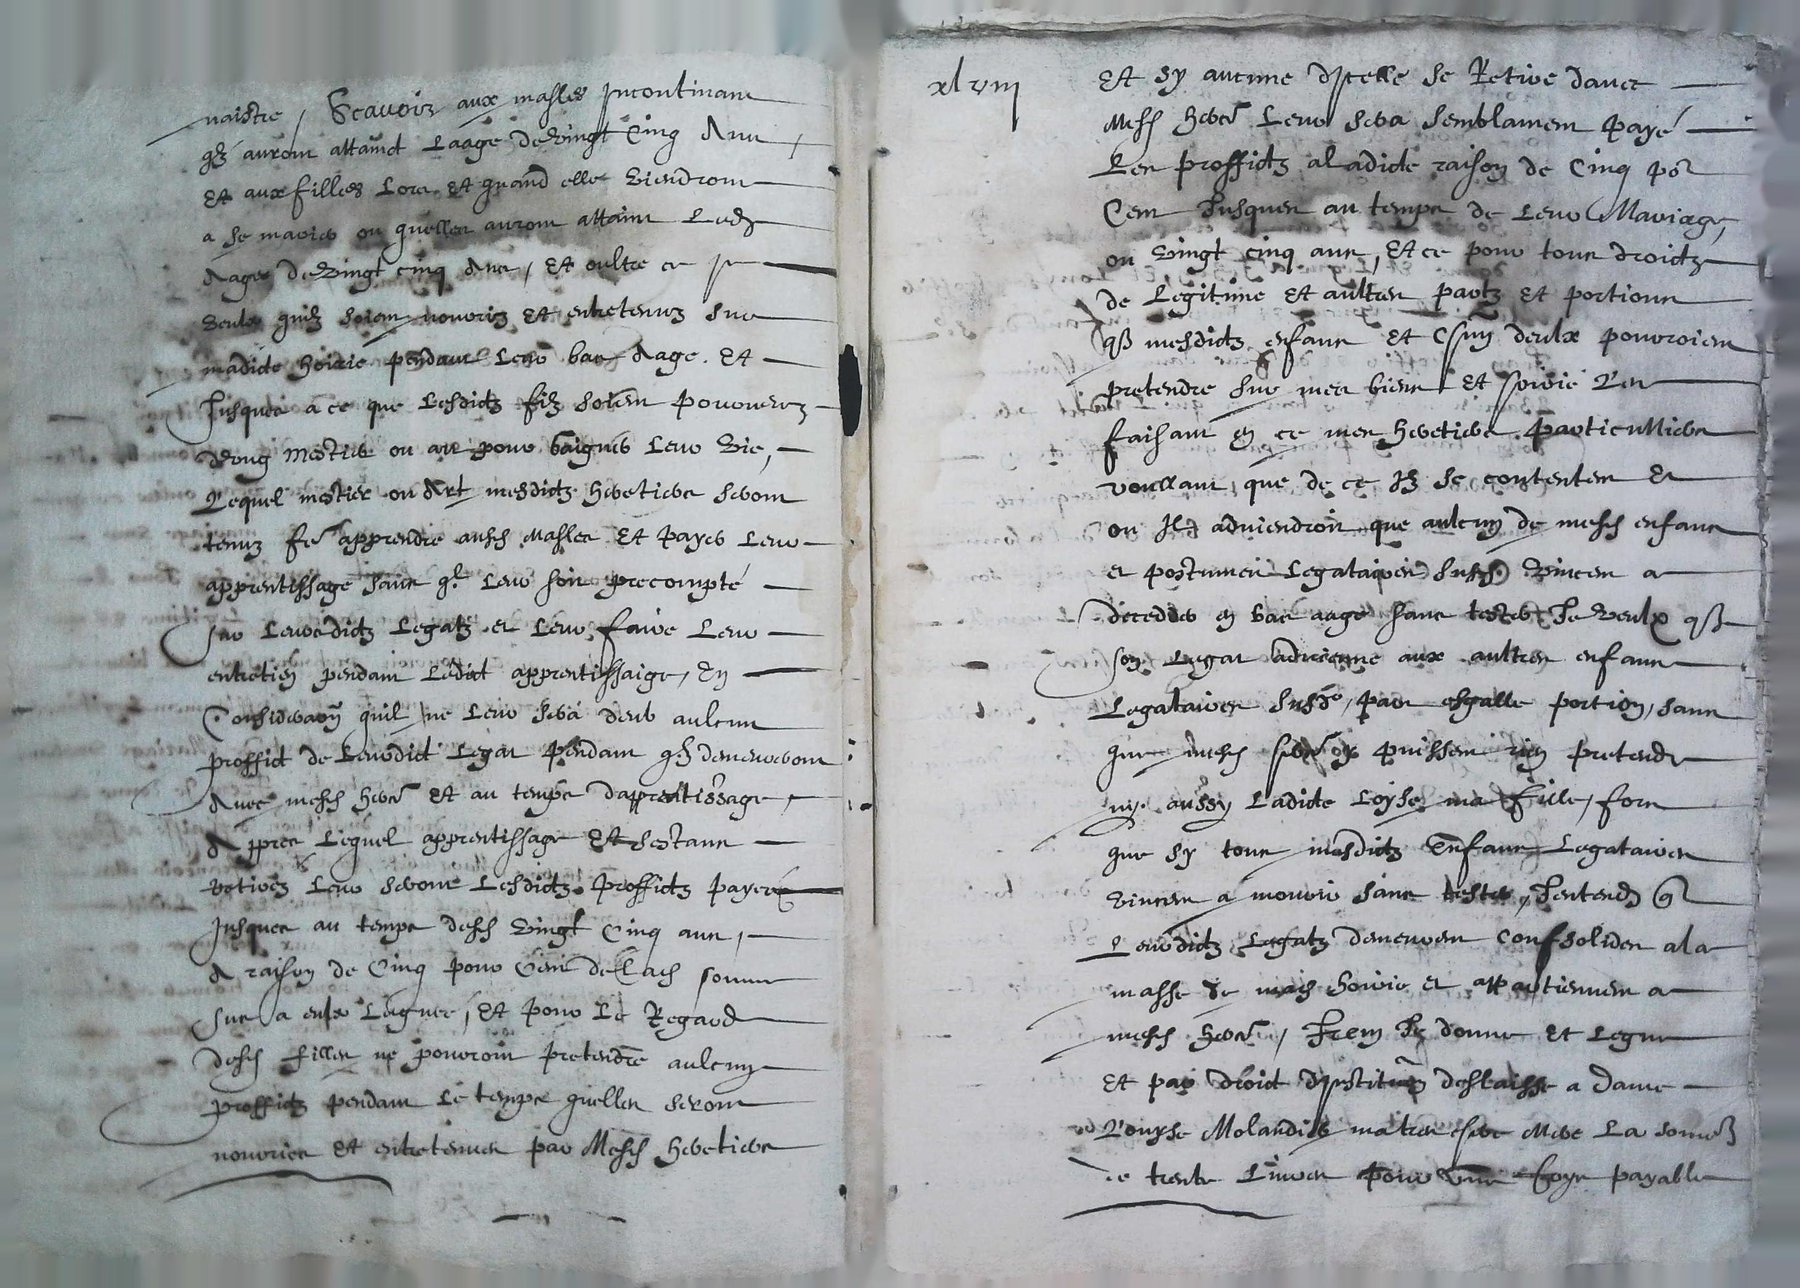 naistre, Scavoir aux masles jncontinant
qlz auront attainct Laage de Vingt Cinq Ans,
Et aux filles Lors et quand elles Viendront
a se marier ou quelles auront attaint Led
Aages de Vingt cinq Ans, Et oultre ce je
Veulx quilz soient nourriz Et entretenuz sur
madicte hoirie pendant Leur bas Aage. Et
Jusques a ce que Lesdictz filz soient pourveuz
dung mestier ou art pour gaigner Leur Vie,
Lequel mestier ou Art mesdictz heretiers seront
tenuz fe apprendre ausd Masles Et payer Leur
apprentissage sans ql Leur soit precompté
sur Leursdictz Legatz et Leur faire Leur
entretien pendant Ledict apprentissaige, En
Consideraon quil ne Leur sera deub aulcun
proffict de Leurdict Legat pendant qlz demeureront
Avec mesd hers Et au temps dapprentissage,
Appres Lequel apprentissage Et sestans
retirez Leur seront Lesdictz proffictz payez
Jusques au temps desd Vingt Cinq ans,
A raison de Cinq pour Cent de Lad somme
sus a eulx Leguee, Et pour Le Regard
desd filles ne pourront pretendre aulcun
proffictz pendant Le temps quelles seront
nourries Et entretenues par Mesd heretiers
xlviii
Et sy aucune dicelle se Retire davec
Mesd hers Leur sera semblament payé
Les proffictz a Ladicte raison de Cinq por
Cent Jusques au temps de Leur Mariage,
ou Vingt cinq ans, Et ce pour tous droictz
de Legitime Et aultres partz Et portions
qlz mesdictz enfans Et Csun deulx pouroient
pretendre sur mes biens Et hoirie Les
faisant en ce mes heretiers particulliers
voullant que de ce Jlz se contentent Et
ou Jl adviendroit que aulcun de mesd enfans
et postumes Legataires susd Vincent a
deceder en bas aage sans tester Je Veulx qlz
son Legat advienne aux aultres enfans
Legataires susd, par esgalle portion, sans
que mesd hers y puissent rien pretendre
ny aussy Ladicte Loyse ma fille, fors
que sy tous mesdictz Enfans Legataires
Vincent a mourir sans tester, Jentendz q
Leursdictz Legatz demeurent Consolidez a la
masse de mad hoirie et appartiennent a
mesd hers, Jtem Je donne Et Legue
Et par droict dinstituon deslaisse a Dame
Louyse Molandier ma tres chere Mere La somme
de trente Livres pour une foys payable